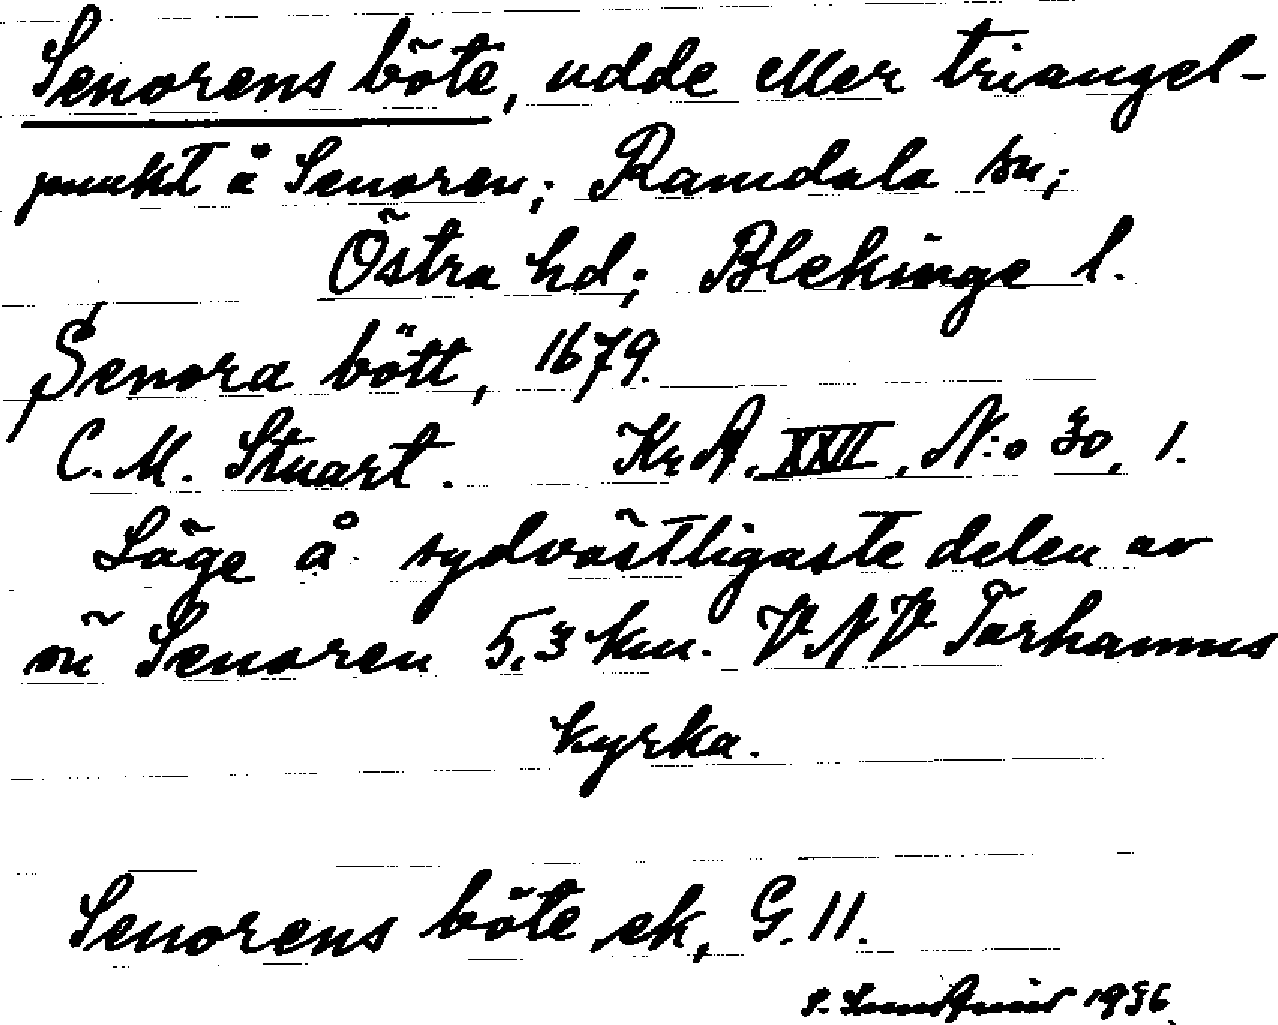 Senorens böte, udde eller triangel-
punkt å Senoren; Ramdala sn;
Östra hd; Blekinge l.
Senora bött, 1679.
C. M. Stuart. Kr A. XXVI, N:o 30, 1.
Läge å sydvästligaste delen av
ön Senoren 5,3 km. VNV Torhamns
kyrka.
Senorens böte ek, G. 11.
1936